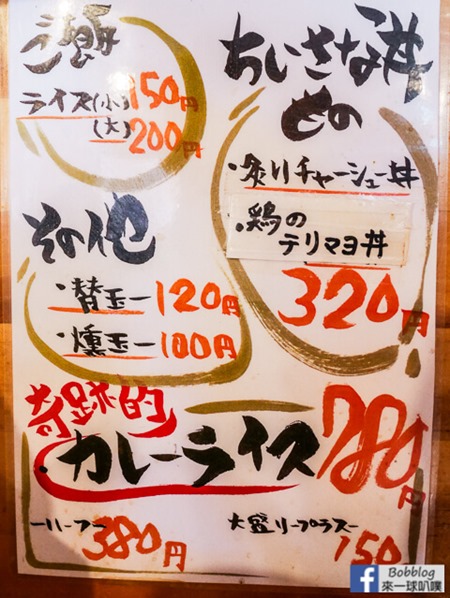 ご飯
ライス(小)150円
(大)200円
ちいさな丼
もの
・炙りチャーシュー丼
・鶏のテリマヨ丼
320円
その他
・替玉ー120円
・燻玉ー100円
奇跡的
・カレーライス 780円
ーハーフー 380円
大盛りープラスー 150
Bobblog
來一球叭噗